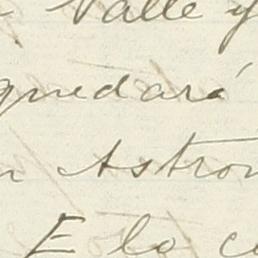 Valle y
quedará
Astron
E lo c